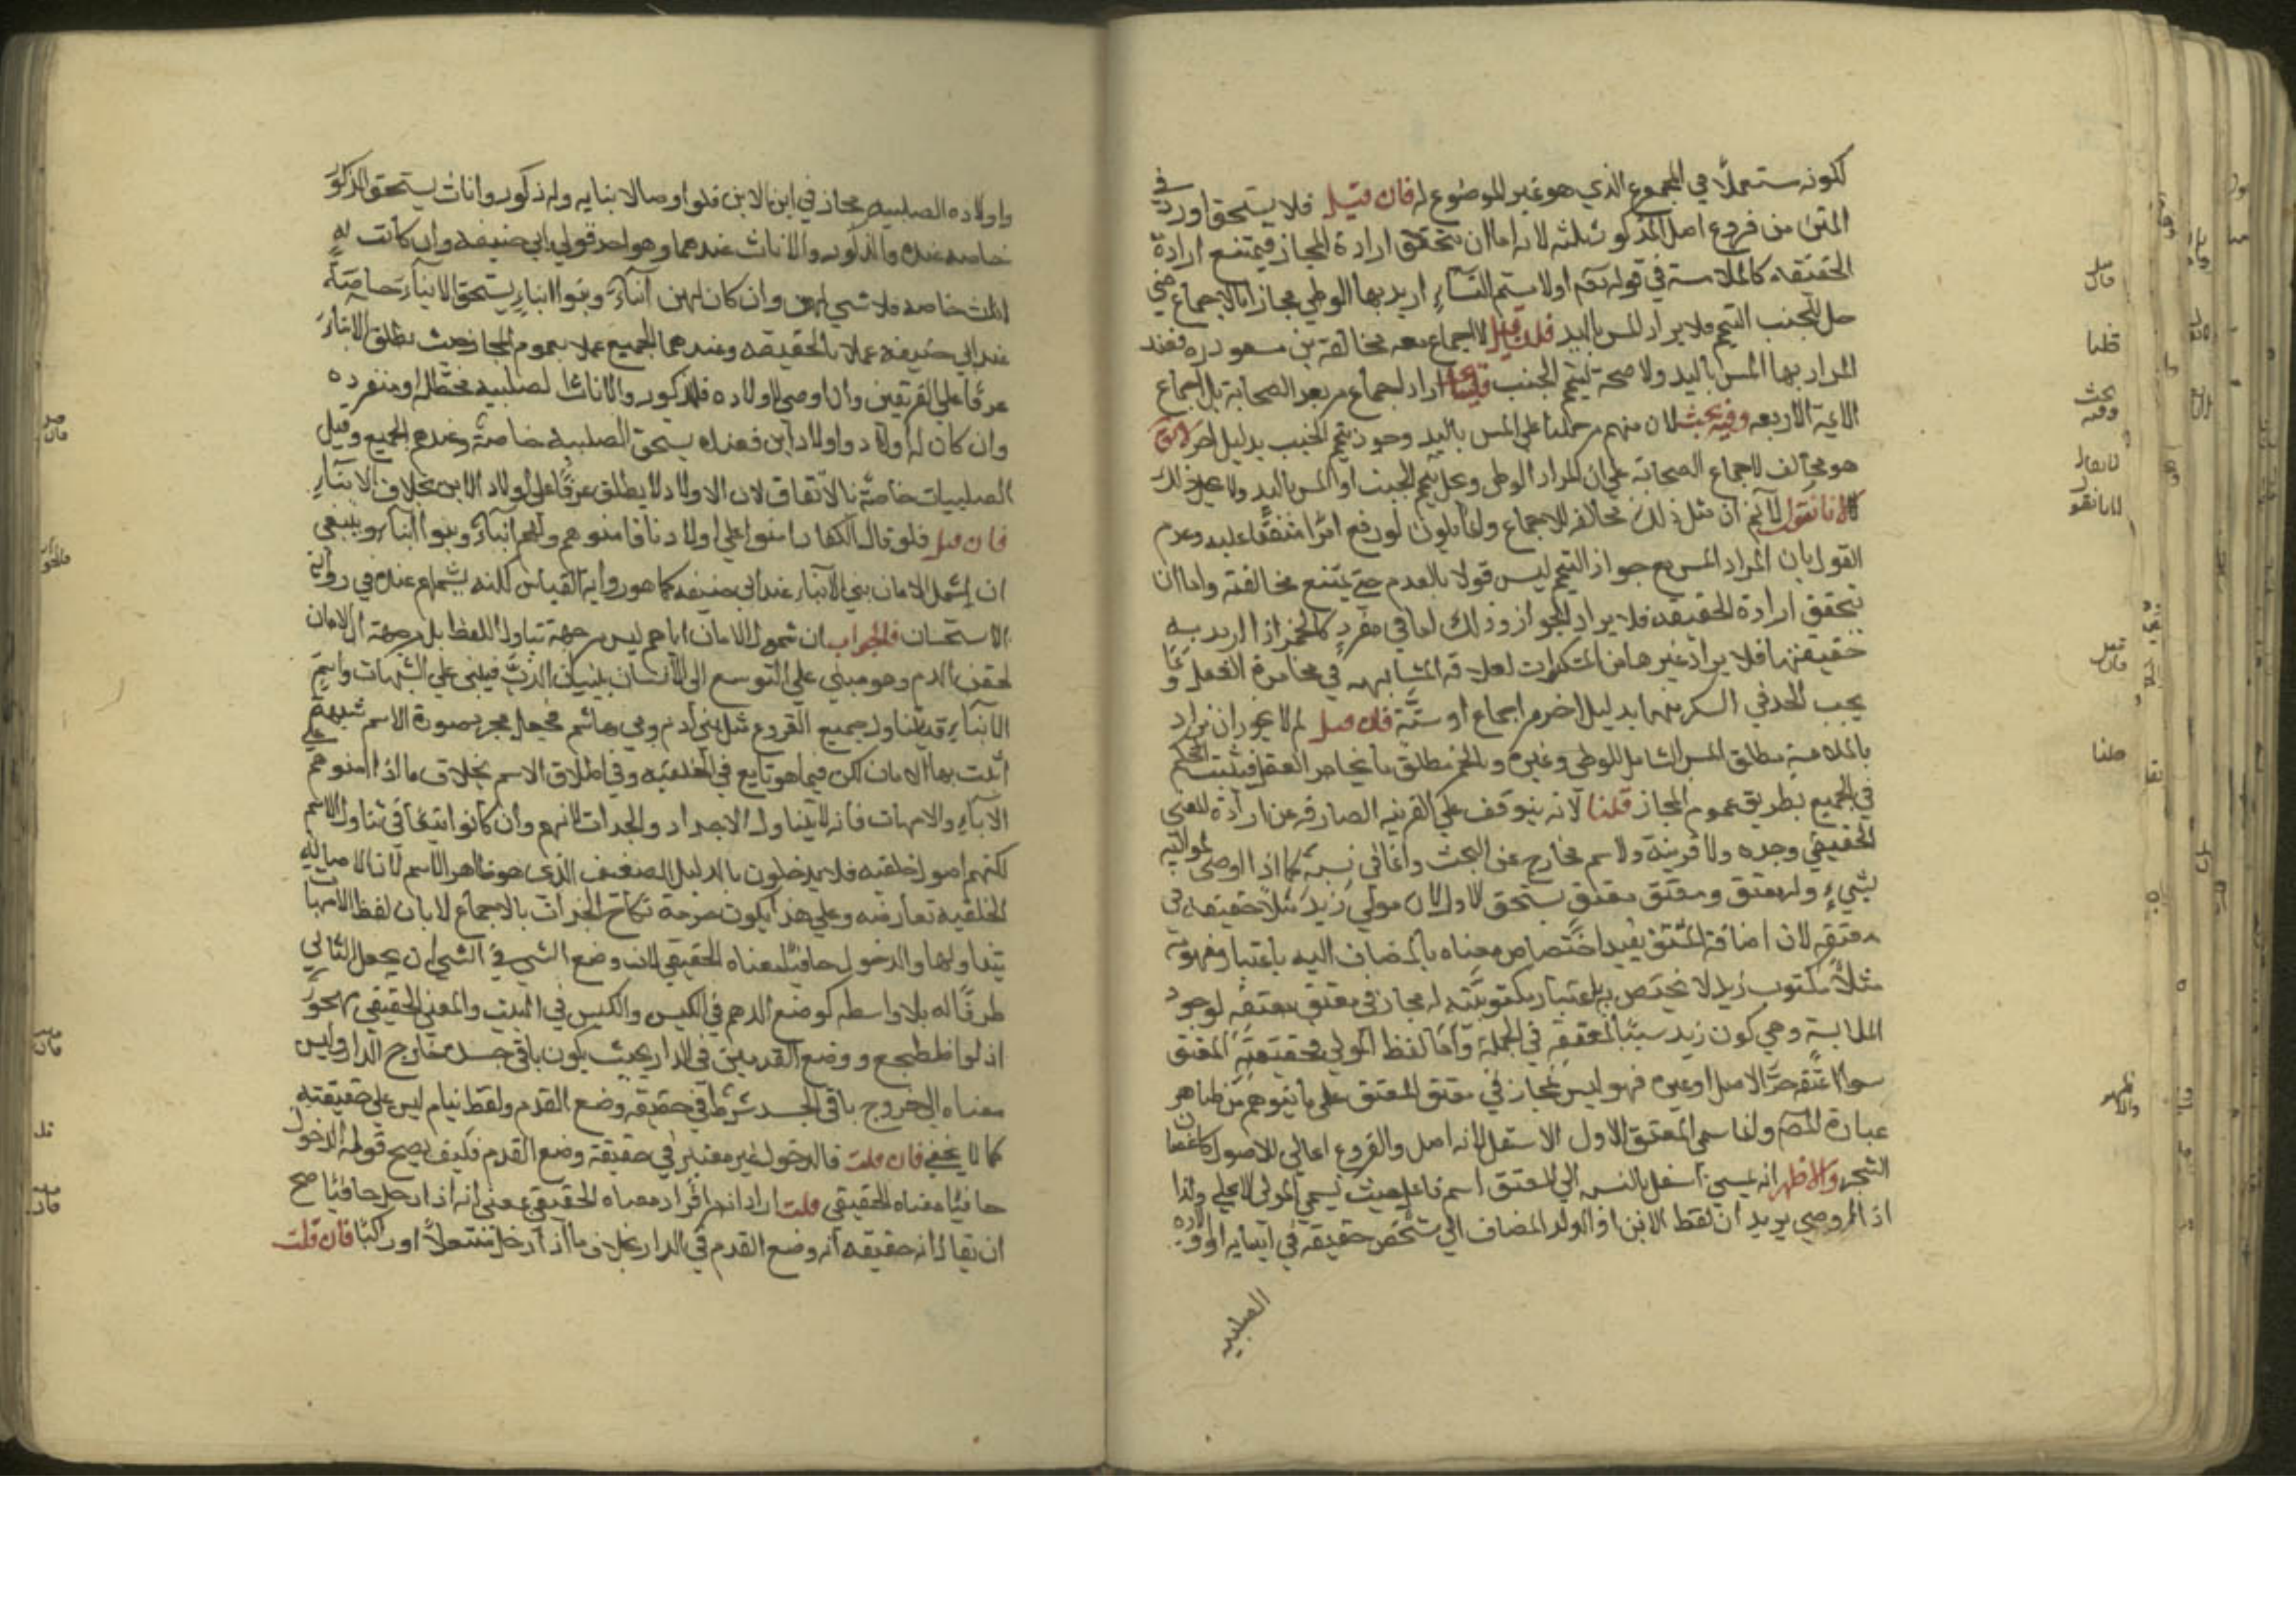 لكونه مستعملا في المجموع الذي هو غير الموضوع له فان قيل فلا يستحق اورد في
المتن من فروع اصل المذكور ثلثه لانه اما ان تتحقق ارادة المجاز فيمتنع ارادة
الحقيقه كالملامسة في قوله تعم او لامستم النساء اريد بها الوطي مجازا بالاجماع حتي
حل للجنب التيمم فلا يراد المس باليد فان قيل لا اجماع مع مخالفة بن مسعود ره فعنده
المراد بها المس باليد ولا صحة لتيمم الجنب قلنا اراد اجماع من بعد الصحابة بل اجماع
الائمة الاربعه وفيه بحث لان منهم من حملها على المس باليد وجوز تيمم الجنب بدليل اخر
هو مخالف لاجماع الصحابة على ان المراد الوطي وحل تيمم الجنب او المس باليد ولا
لانا نقول لا نم ان مثل ذلك مخالفه للاجماع وانما يكون لو رفع امرا متفقا عليه وعدم
القول بان المراد المس مع جواز التيمم ليس قولا بالعدم حتي يمتنع مخالفته واما ان
تحقق ارادة الحقيقه فلا يراد المجاز وذلك اما في مفرد كالخمر اذا اريد به
حقيقتها فلا يراد غيرها من المسكرات لعلاقه المشابهه في مخامرة العقل
يجب الحد في السكر منها بدليل اخر من اجماع او سنة فان قيل لم لا يجوز ان يراد
بالملامسة مطلق المس الشامل للوطي وغيره وبالخمر مطلق ما يخامر العقل فيثبت الحكم
في الجميع بطريق عموم المجاز قلنا لانه يتوقف على القرينه الصارفه عن ارادة المعني
الحقيقي وحده ولا قرينة ولا سم مخارج عن البحث واما في نسبة كما اذا اوصي لمواليه
بشيء وله معتق ومعتق معتق يستحق الاول لان مولي زيد مثلا حقيقه في
معتقه لان اضافة المشتق يفيد اختصاص معناه بالمضاف اليه باعتبار مفهومه
مثلا مكتوب زيد لا يختص به باعتبار مكتوبيته له مجاز في معتق معتقه لوجود
الملابسة وهي كون زيد سببا لعتقه في الجملة واما لفظ المولي فحقيقته المعتق
سواء اعتقه حر الاصل او غيره فهو ليس بمجاز في معتق المعتق على ما يتوهم من ظاهر
عبارة المص وانما سمي المعتق الاول الاسفل لانه اصل والفروع اعالي للاصول كاغصان
الشجر والاظهر انه سمي اسفل بالنسبه الي المعتق اسم فاعل حيث يسمي المولي الاعلي وكذا
اذا اوصي يريد ان لفظ الابن او الولد المضاف الي شخص حقيقه في ابنايه اولاده
الصلبيه
واولاده الصلبيه مجاز في ابن الابن فلو اوصا لابنايه وله ذكور واناث يستحق الذكور
خاصه عنده والذكور والاناث عندهما وهو احد قولي ابي حنيفه وان كانت له
اناث خاصه فلا شي لهن وان كان لهن ابناء وبنوا ابناء يستحق الابناء خاصة
عند ابي حنيفه عملا بالحقيقه وعندهما الجميع عملا بعموم المجاز حيث يطلق الابناء
عرفا على الفريقين وان اوصي لاولاده فللذكور والاناث الصلبيه مختلطه او منفرده
وان كان له اولاد واولاد ابن فعنده يستحق الصلبيه خاصة وعندهم الجميع وقيل
الصلبيات خاصة بالاتفاق لان الاولاد لا يطلق عرفا على اولاد الابن بخلاف الابناء
فان قيل فلو قال الكفار امنوا على اولادنا فامنوهم ولهم ابناء وبنوا ابناء وينبغي
ان لا يشمل الامان بني الابناء عند ابي حنيفه كما هو رواية القياس لكنه يشملهم عنده في رواية
الاستحسان فالجواب ان شمول الامان اياهم ليس من جهة تناول اللفظ بل من جهة ان الامان
لحقن الدم وهو مبني على التوسع اذ الانسان بنيان الرب فيبني على الشبهات واسم
الابناء قد يتناول جميع الفروع مثل بني ادم وبني هاشم فجعل مجرد صورة الاسم شبهة
اثبت بها الامان لكن فيما هو تابع في الخلقيه وفي اطلاق الاسم بخلاف ما اذا امنوهم علي
الاباء والامهات فانه لا يتناول الاجداد والجدات لانهم وان كانوا اتباعا في تناول الاسم
لكنهم اصول خلقيه فلا يدخلون بالدليل الضعيف الذي هو ظاهر الاسم لان الاصاليه
الخلقيه تعارضه وعلى هذا يكون حرمة نكاح الجدات بالاجماع لا بان لفظ الامهات
يتناولها والدخول حافيا معناه الحقيقي لان وضع الشي في الشي ان يجعل الثاني
ظرفا له بلا واسطه كوضع الدرهم في الكيس والكيس في البيت والمعني الحقيقي مهجور
اذ لو اضطجع ووضع القدمين في الدار بحيث يكون باقي جسده خارج الدار وليس
معناه ان خروج باقي الجسد شرط في حقيقة وضع القدم ولفظ نيام ليس على حقيقته
كما لا يخفي فان قلت فالدخول غير معتبر في حقيقة وضع القدم فكيف يصح قوله الدخول
حافيا معناه الحقيقي قلت اراد انه من افراد معناه الحقيقي بمعني انه اذا دخل حافيا صح
ان يقال انه حقيقه انه وضع القدم في الدار بخلاف ما اذا دخل منتعلا او راكبا فان قلت